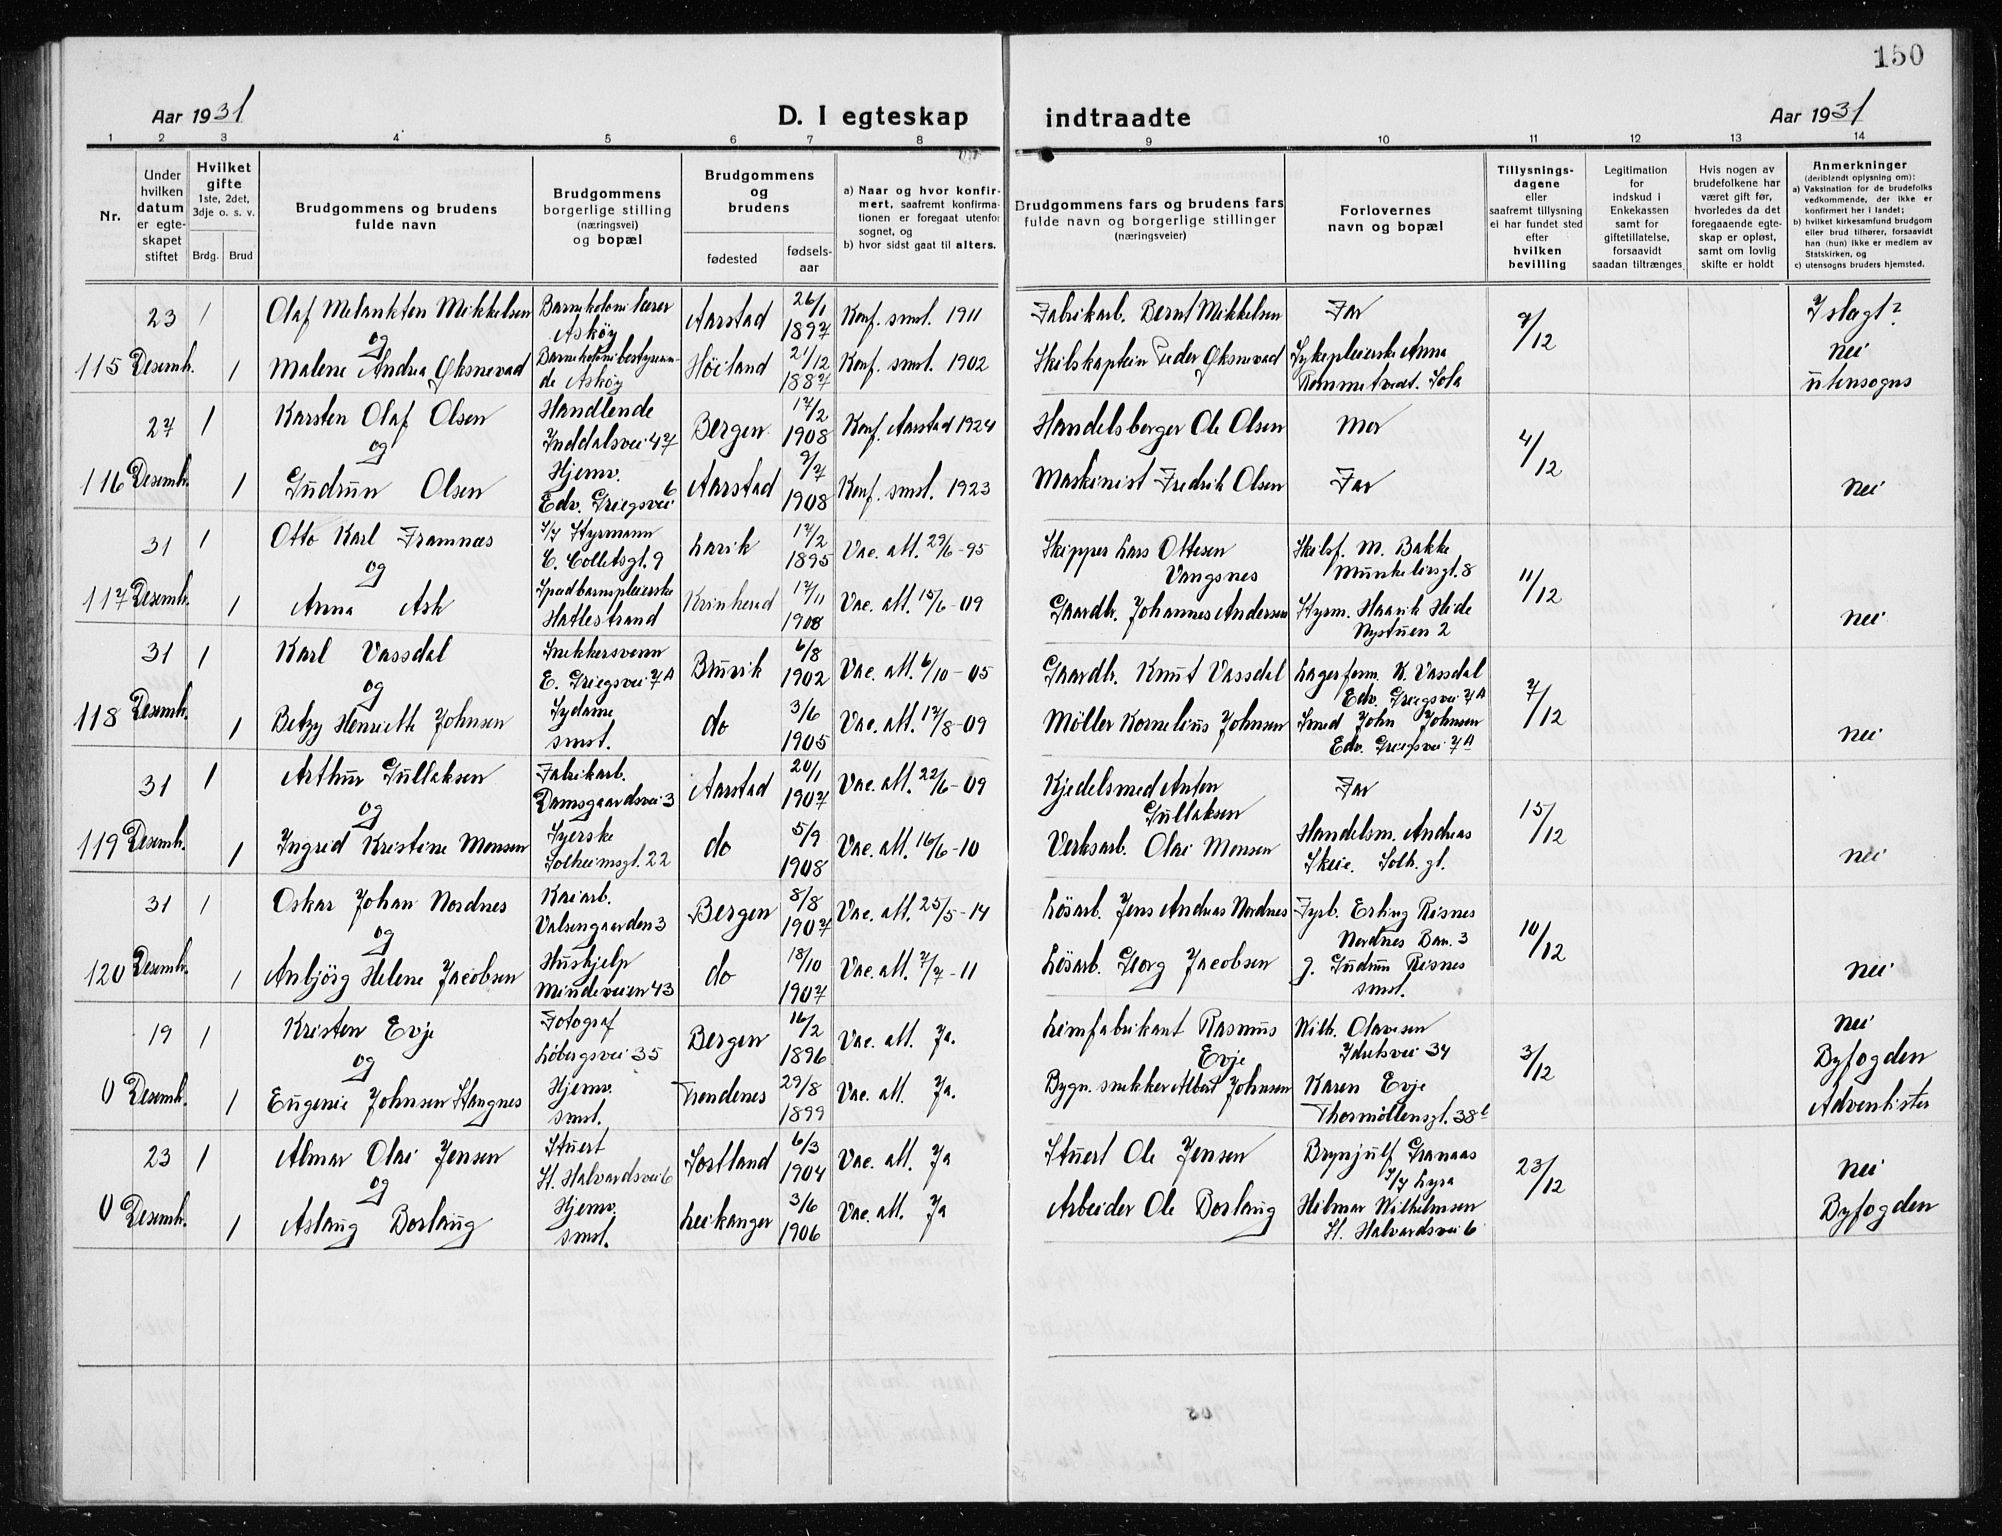 150
Aar 1931
D. I egteskap indtraadte
Aar 1931
1 2 3 4 5 6 7 8 9 10 11 12 13 14
Nr.
Under hvilken datum er egteskapet stiftet
Hvilket gifte 1ste, 2det, 3dje o. s. v.
Brdg. Brud
Brudgommens og brudens fulde navn
Brudgommens borgerlige stilling (næringsvei) og bopæl
Brudgommens og brudens
fødested
fødsels-aar
a) Naar og hvor konfirmert, saafremt konfirmationen er foregaat utenfor sognet, og
b) hvor sidst gaat til alters.
Brudgommens fars og brudens fars fulde navn og borgerlige stillinger (næringsveier)
Forlovernes navn og bopæl
Tillysningsdagene eller saafremt tillysning ei har fundet sted efter hvilken bevilling
Legitimation for indskud i Enkekassen samt for giftetillatelse, forsaavidt saadan tiltrænges
Hvis nogen av brudefolkene har været gift før, hvorledes da det foregaaende egteskap er opløst, samt om lovlig skifte er holdt
Anmerkninger (deriblendt oplysning om):
a) Vaksination for de brudefolks vedkommende, der ikke er konfirmert her i landet;
b) hvilket kirkesamfund brudgom eller brud tilhører, forsaavidt han (hun) ikke er medlem av Statskirken, og
c) utensogns bruders hjemsted.
23 1 Olaf Melankton Mikkelsen Barnekolonilærer Askøy Aarstad 26/1 1897 Konf. smst. 1911 Fabrikarb. Bernt Mikkelsen Far 9/12 I slagt?
og
115 Desemb. 1 Malene Andrea Øksnevad Barnekolonibestyrende Askøy Høiland 21/12 1887 Konf. smst. 1902 Skibskaptein Peder Øksnevad Sykepleierske Anna Rommetvedt. Sola nei utensogns
27 1 Karsten Olaf Olsen Handlende Inddalsvei 47 Bergen 17/2 1908 Konf. Aarstad 1924 Handelsborger Ole Olsen Mor 4/12
og
116 Desemb. 1 Gudrun Olsen Hjemv. Edv. Griegsvei 6 Aarstad 9/7 1908 Konf. smst. 1923 Maskinist Fredrik Olsen Far nei
31 1 Otto Karl Framnæs Styrmann C. Colletsgt. 9 Larvik 17/2 1895 Vac. att. 29/6-95 Skipper Lars Ottesen Vangsnes Skibsf. M. Bakke Munkelivsgt. 8 11/12
og
117 Desemb. 1 Anna Ask Spædbarnspleierske Hatlestrand 17/11 1908 Vac. att. 15/6-09 Gaardbr. Johannes Andersen Styrm. Haavik Hide Nystuen 2 nei
31 1 Karl Vassdal Snekkersvenn E. Griegsvei 7A Bruvik 6/8 1902 Vac. att. 6/10-05 Gaardb. Knut Vassdal Lagerform. K. Vassdal Edv. Griegsvei 7A 7/12
og
118 Desemb. 1 Betzy Henriette Johnsen Sydame smst. do 3/6 1905 Vac. att. 17/8-09 Møller Kornelius Johnsen Smed John Johnsen Edv. Griegsvei 7A nei
31 1 Arthur Gullaksen Fabrikarb. Damsgaardsvei 3 Aarstad 20/1 1907 Vac. att. 22/6-09 Kjedelsmed Anton Gullaksen Far 15/12
og
119 Desemb. 1 Ingrid Kristine Monsen Syerske Solheimsgt. 22 do 5/9 1908 Vac. att. 16/6-10 Verksarb. Olai Monsen Handelsm. Andreas Skeie. Solh. gt. nei
31 1 Oskar Johan Nordnes Kaiarb. Valsengaarden 3 Bergen 8/8 1907 Vac. att. 25/5-14 Løsarb. Jens Andreas Nordnes Fyrb. Erling Risnes Nordnes Bak. 3 10/12
og
120 Desemb. 1 Anbjørg Helene Jacobsen Hushjelp Mindeveien 43 do 18/10 1907 Vac. att. 7/7-11 Løsarb. Georg Jacobsen g. Gudrun Risnes smst. nei
19 1 Kristen Evje Fotograf Løbergsvei 35 Bergen 16/2 1896 Vac. att. Ja. Limfabrikant Rasmus Evje Wilh. Olavesen Idrætsvei 34 3/12 nei
og Byfogden
0 Desemb. 1 Eugenie Johnsen Stangnes Hjemv. smst. Trondenes 29/8 1899 Vac. att. Ja. Bygn. snekker Albert Johnsen Karen Evje Thormøllensgt. 38b Adventister
23 1 Almar Olai Jensen Stuert St. Halvardsvei 6 Sortland 6/3 1904 Vac. att. Ja Stuert Ole Jensen Brynjulf Granaas Lyra 23/12 nei
og
0 Desemb. 1 Aslaug Borlaug Hjemv. smst. Leikanger 3/6 1906 Vac. att. Ja Arbeider Ole Borlaug Hilmar Wilhelmsen St. Halvardsvei 6 Byfogden